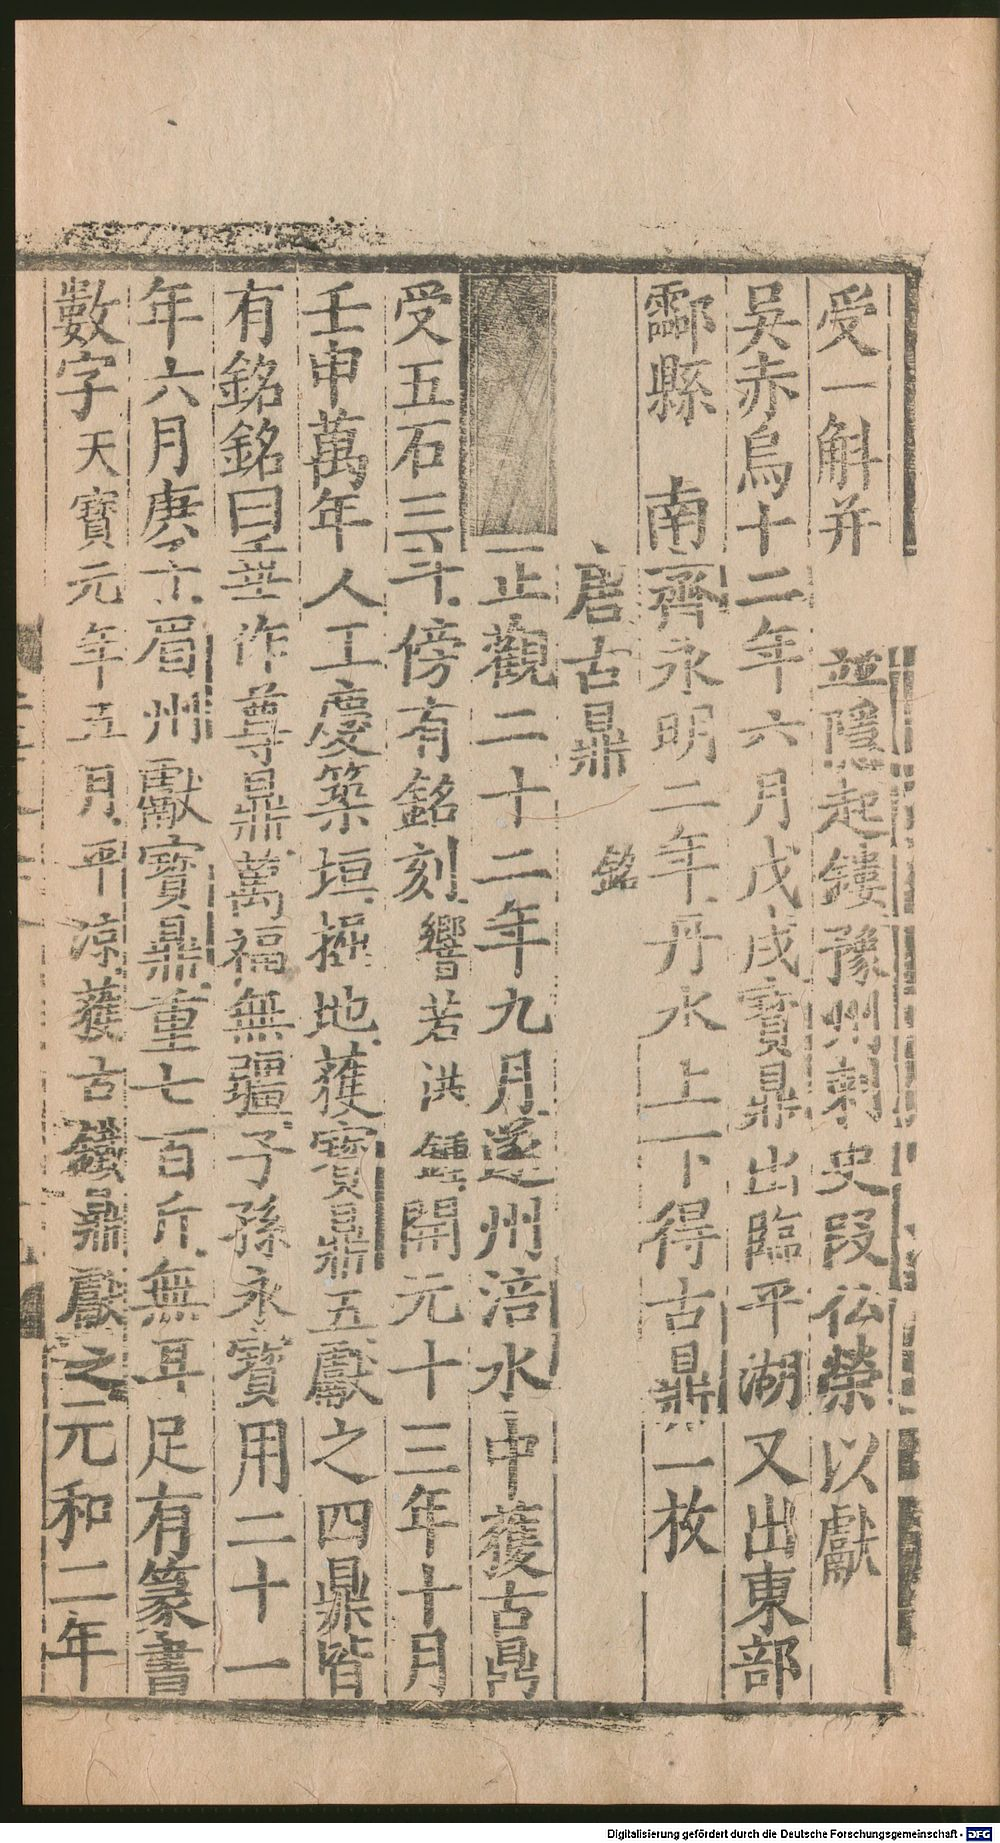 受一斛并　並隱起鏤豫州刺史段佛榮以獻
吳赤烏十二年六月戊戌寶鼎出臨平湖又出東部
酃縣　南齊永明二年丹水上下得古鼎一枚
唐古鼎　銘
正觀二十二年九月遂州涪水中獲古鼎
受五石三斗傍有銘刻響若洪鍾開元十三年十月
壬申萬年人工慶築垣掘地獲寶鼎五獻之四鼎皆
有銘銘曰垂作尊鼎萬福無疆子孫永寶用二十一
年六月庚子眉州獻寶鼎重七百斤無耳足有篆書
數字天寶元年五月平涼獲古鐵鼎獻之元和二年
Digitalisierung gefördert durch die Deutsche Forschungsgemeinschaft - DFG